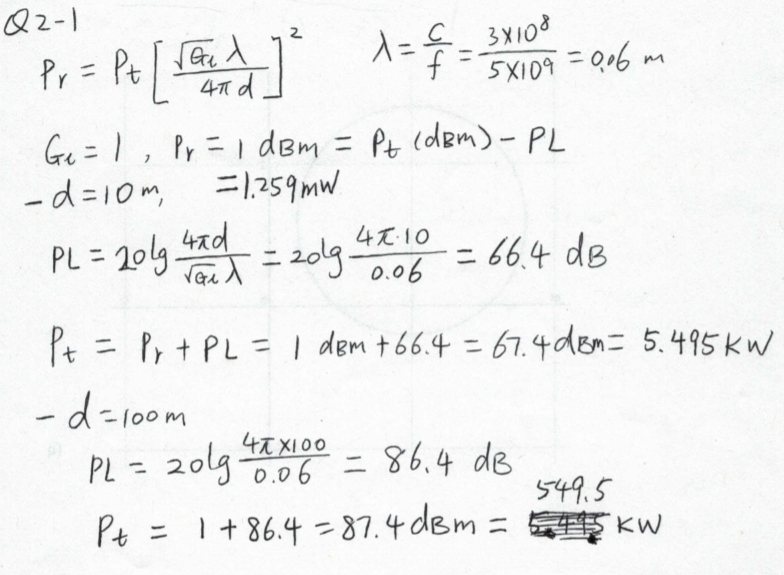 Q2-1
Pr = Pt [ √Gl λ / 4π d ]²   λ = c/f = 3×10⁸ / 5×10⁹ = 0.06 m
Gl = 1 , Pr = 1 dBm = Pt (dBm) − PL
- d = 10 m,   = 1.259 mW
PL = 20lg 4πd / √Gl λ = 20lg 4π·10 / 0.06 = 66.4 dB
Pt = Pr + PL = 1 dBm + 66.4 = 67.4 dBm = 5.495 KW
- d = 100 m
PL = 20lg 4π×100 / 0.06 = 86.4 dB
Pt = 1 + 86.4 = 87.4 dBm = 549.5 KW